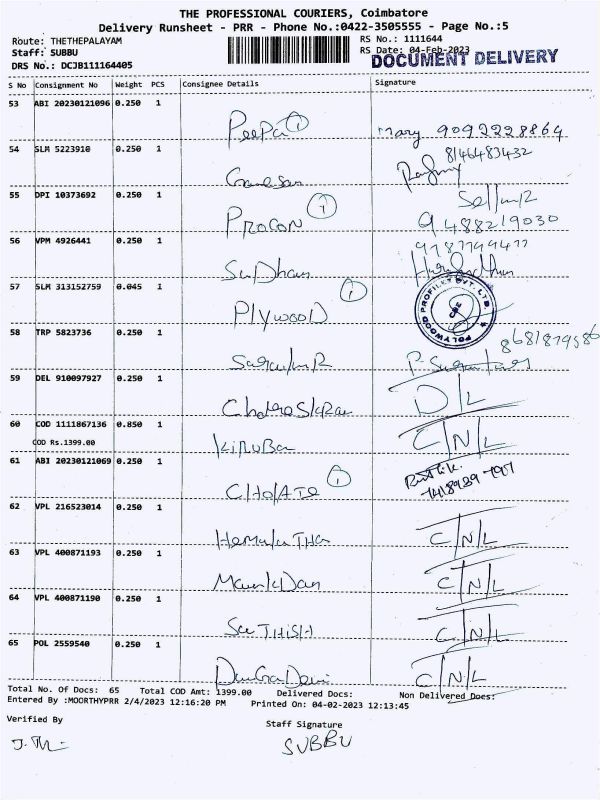 THE PROFESSIONAL COURIERS, Coimbatore
Delivery Runsheet - PRR - Phone No.:0422-3505555 - Page No.:5
Route: THETHEPALAYAM
RS No.: 1111644
Staff: SUBBU
RS Date: 04-Feb-2023
DOCUMENT DELIVERY
DRS No.: DCJB111164405
S No Consignment No Weight PCS Consignee Details Signature
53 ABI 20230121096 0.250 1
Mary 9092228864
54 SLM 5223910 0.250 1
8146483432
Ganesan
55 DPI 10373692 0.250 1
PROCON 1
9488219030
56 VPM 4926441 0.250 1
57 SLM 313152759 0.045 1
PLYWOOD 1
POLYWOOD PROFILES PVT. LTD.
CBE
58 TRP 5823736 0.250 1
8681879586
59 DEL 910097927 0.250 1
D/L
60 COD 1111867136 0.850 1
COD Rs.1399.00
KIRUBa C/N/L
61 ABI 20230121069 0.250 1
1
62 VPL 216523014 0.250 1
C/N/L
63 VPL 400871193 0.250 1
C/N/L
64 VPL 400871190 0.250 1
SaTHISH C/N/L
65 POL 2559540 0.250 1
DurGaDevi C/N/L
Total No. Of Docs: 65 Total COD Amt: 1399.00 Delivered Docs: Non Delivered Docs:
Entered By :MOORTHYPRR 2/4/2023 12:16:20 PM Printed On: 04-02-2023 12:13:45
Verified By
Staff Signature
SUBBU